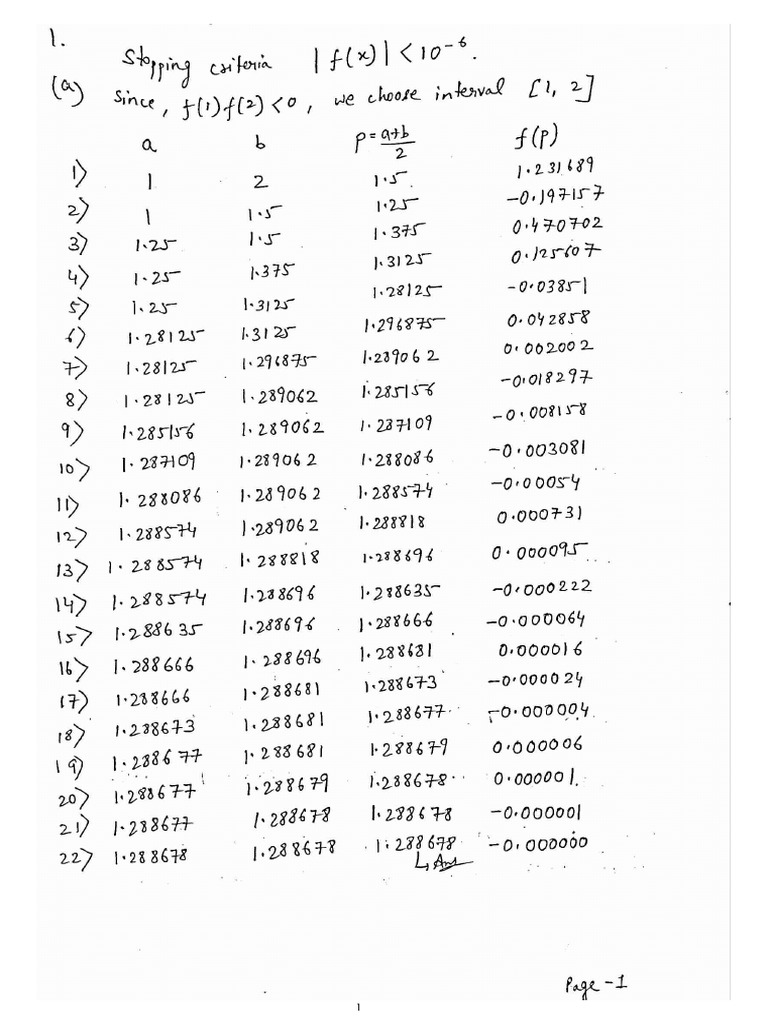 1.
Stopping criteria |f(x)| < 10^-6.
(a) Since, f(1)f(2)<0, we choose interval [1, 2]
a b p = a+b/2 f(p)
1) 1 2 1.5. 1.231689
2) 1 1.5 1.25 -0.197157
3) 1.25 1.5 1.375 0.470702
4) 1.25 1.375 1.3125 0.125607
5) 1.25 1.3125 1.28125 -0.03851
6) 1.28125 1.3125 1.296875 0.042858
7) 1.28125 1.296875 1.289062 0.002002
8) 1.28125 1.289062 1.285156 -0.018297
9) 1.285156 1.289062 1.287109 -0.008158
10) 1.287109 1.289062 1.288086 -0.003081
11) 1.288086 1.289062 1.288574 -0.00054
12) 1.288574 1.289062 1.288818 0.000731
13) 1.288574 1.288818 1.288696 0.000095
14) 1.288574 1.288696 1.288635 -0.000222
15) 1.288635 1.288696 1.288666 -0.000064
16) 1.288666 1.288696 1.288681 0.000016
17) 1.288666 1.288681 1.288673 -0.000024
18) 1.288673 1.288681 1.288677 -0.000004
19) 1.288677 1.288681 1.288679 0.000006
20) 1.288677 1.288679 1.288678 0.000001
21) 1.288677 1.288678 1.288678 -0.000001
22) 1.288678 1.288678 1.288678 -0.000000
↳ Ans
Page -1
1